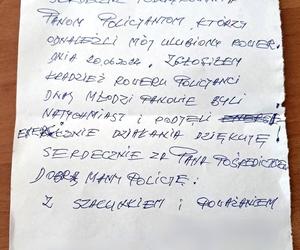 SERDECZNE PODZIĘKOWANIA
PANOM POLICJANTOM, KTÓRZY
ODNALEŹLI MÓJ ULUBIONY ROWER.
DNIA 20.06.2024. ZGŁOSIŁEM
KRADZIEŻ ROWERU POLICJANCI
DWAJ MŁODZI PANOWIE BYLI
NATYCHMIAST I PODJĘLI
ENERGICZNIE DZIAŁANIA DZIĘKUJĘ!
SERDECZNIE ZA PANA
DOBRĄ MAMY POLICJĘ.
Z SZACUNKIEM I POWAŻANIEM